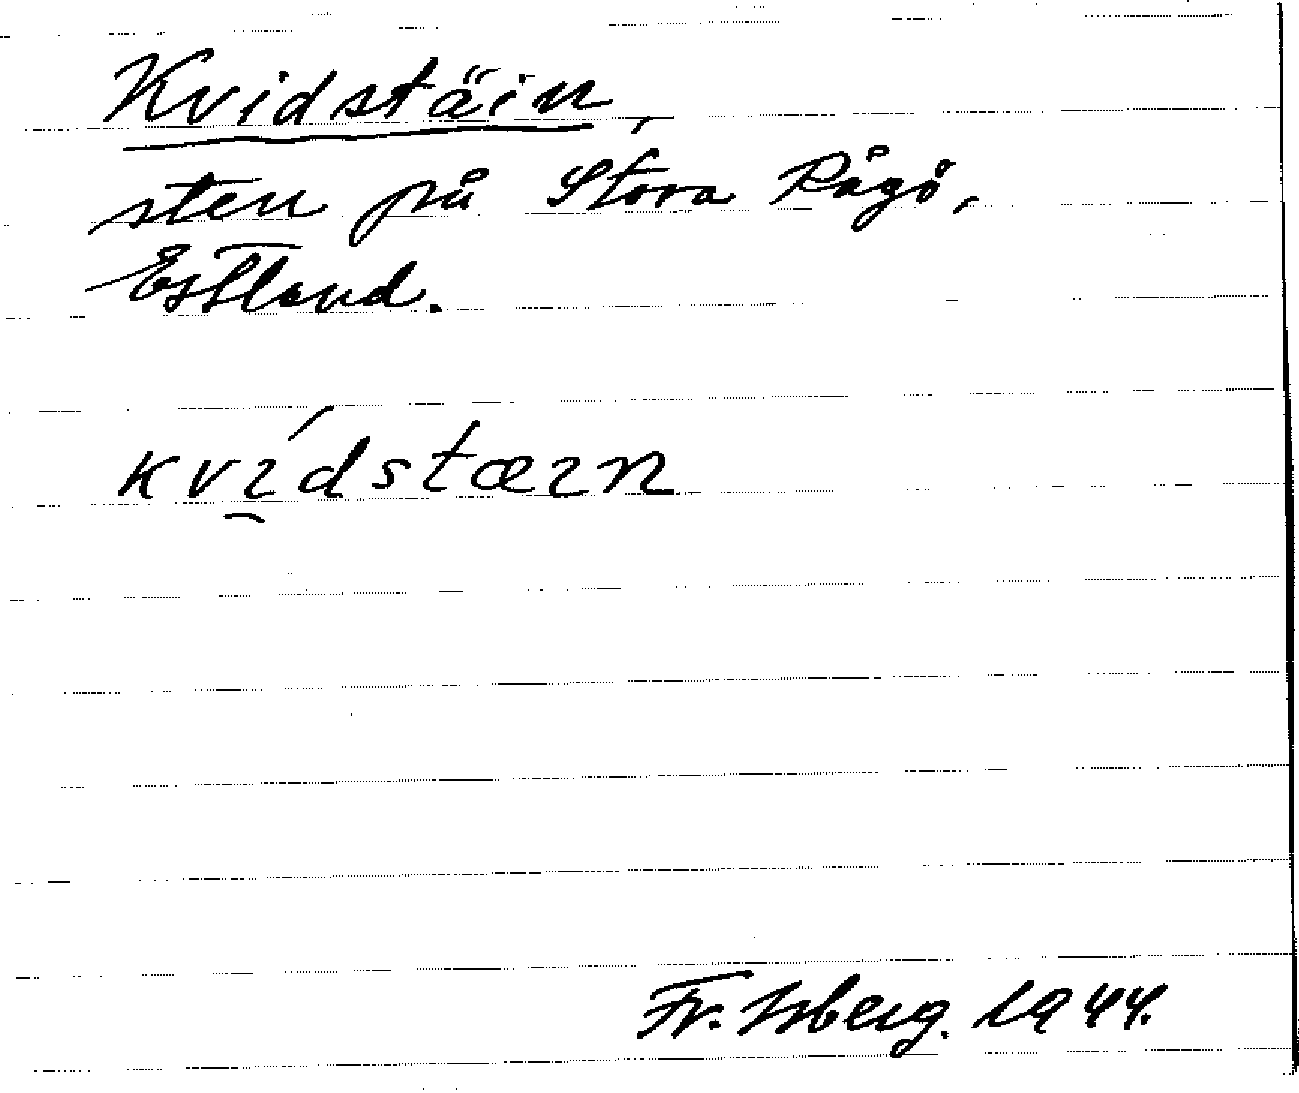 Kvidstäin,
sten på Stora Rågö,
Estland.
kvı̯́dstæın
Fr. Isberg. 1944.